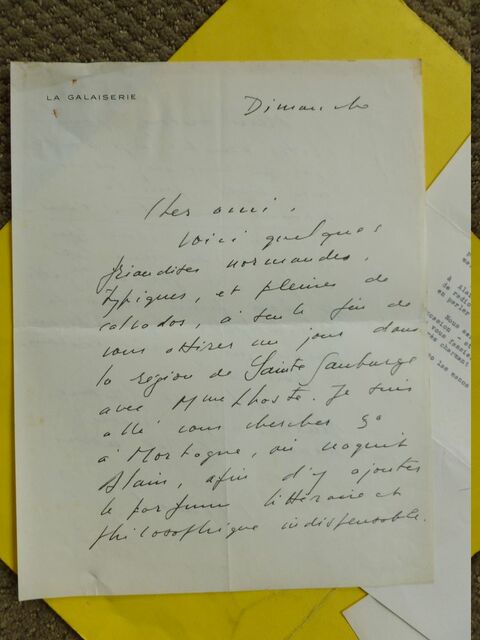 LA GALAISERIE
Dimanche
Cher ami,
Voici quelques
friandises normandes,
typiques, et pleines de
calvados, à seule fin de
vous attirer un jour dans
la région de Sainte Gauburge
avec Mme Lhoste. Je suis
allé vous chercher ça
à Mortagne, où naquit
Alain, afin d'y ajouter
le parfum littéraire et
philosophique indispensable.
à Alai
de radio
en parler
Nous se
vous fassie
rès charmant